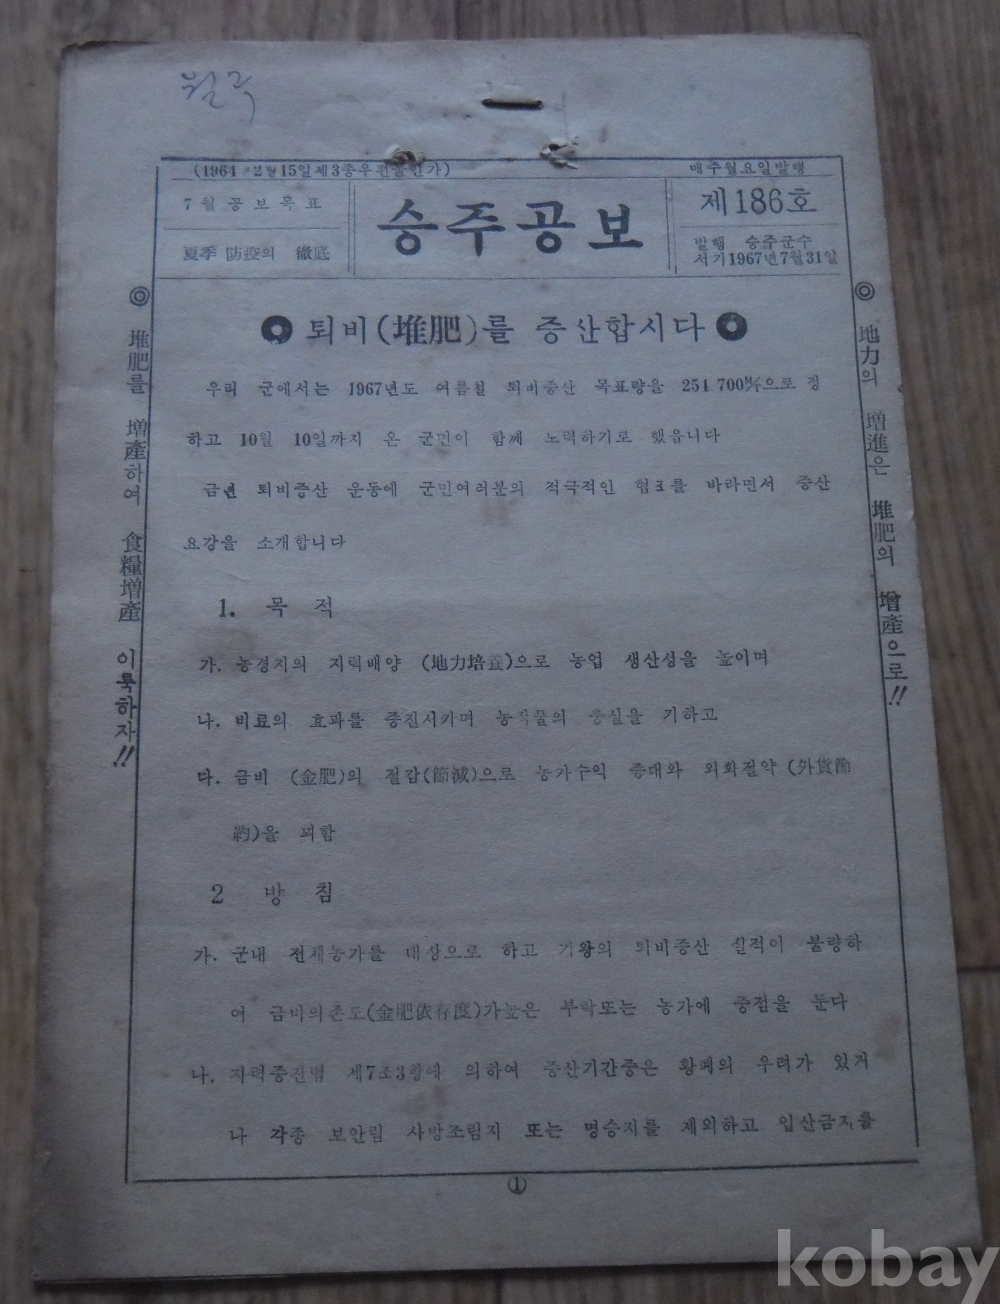 월곡
(1964 12월15일제3종우편물인가)
매주월요일발행
7월공보목표
夏季 防疫의 徹底
승주공보
제186호
발행 승주군수
서기1967년7월31일
◎ 堆肥를 增產하여 食糧增產 이룩하자!!
◎ 地力의 增進은 堆肥의 增產으로!!
퇴비(堆肥)를 증산합시다
우리 군에서는 1967년도 여름철 퇴비증산 목표량을 254 700M/T으로 정
하고 10월 10일까지 온 군민이 함께 노력하기로 했읍니다
금년 퇴비증산 운동에 군민여러분의 적극적인 협조를 바라면서 증산
요강을 소개합니다
1. 목적
가. 농경지의 지력배양 (地力培養)으로 농업 생산성을 높이며
나. 비료의 효과를 증진시키며 농작물의 충실을 기하고
다. 금비 (金肥)의 절감(節減)으로 농가수익 증대와 외화절약 (外貨節
約)을 꾀함
2 방침
가. 군내 전체농가를 대상으로 하고 기왕의 퇴비증산 실적이 불량하
여 금비의존도(金肥依存度)가높은 부락또는 농가에 중점을 둔다
나. 지력증진법 제7조3항에 의하여 증산기간중은 황폐의 우려가 있거
나 각종 보안림 사방조림지 또는 명승지를 제외하고 입산금지를
①
kobay